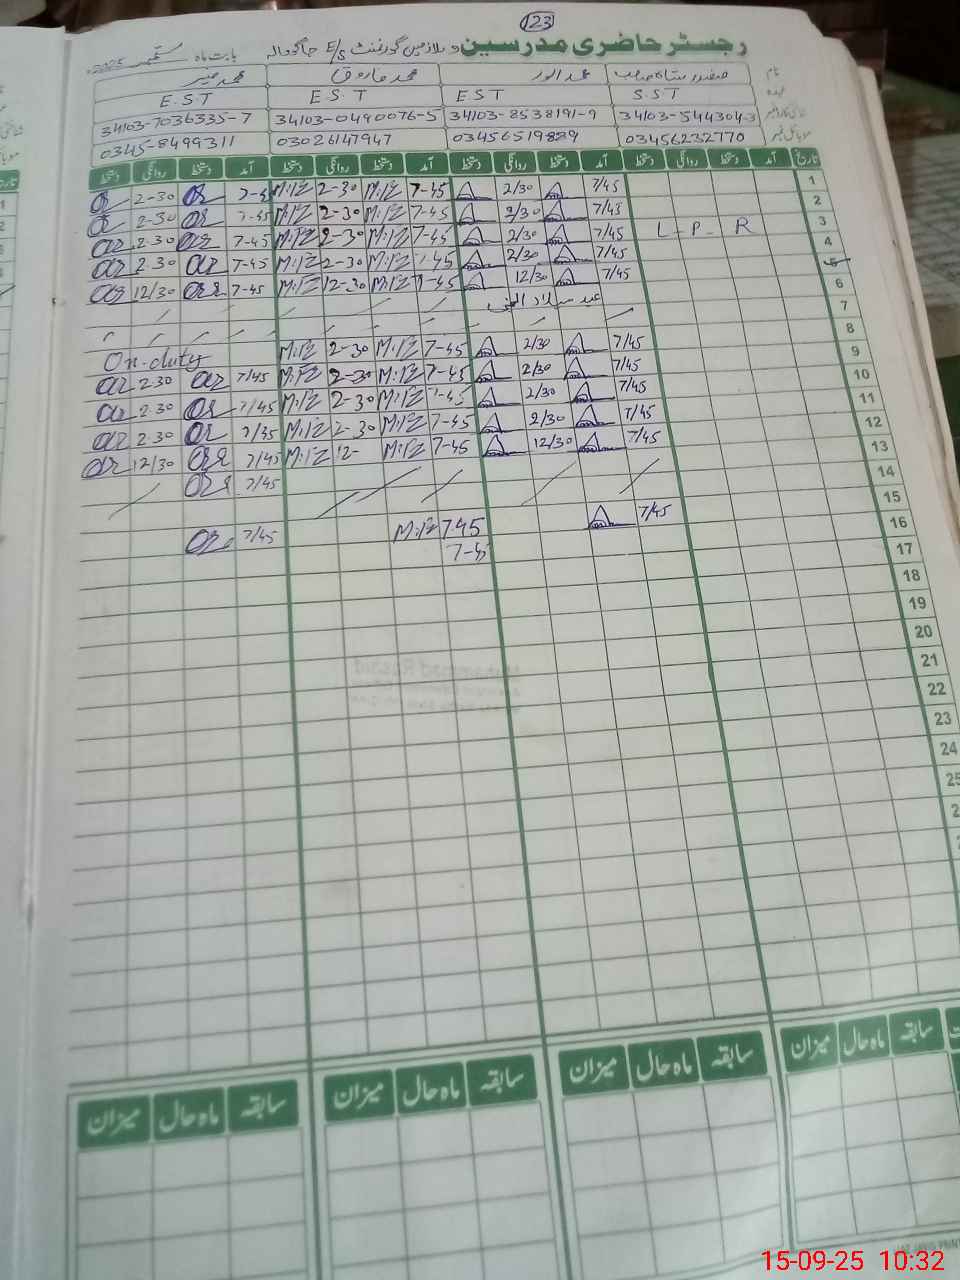 123
رجسٹر حاضری مدرسین و ملازمین گورنمنٹ E/S جاگووالہ بابت ماہ ستمبر 2025ء
نام صفدر ستار صاحب محمد انور محمد فاروق محمد منیر
عہدہ S.S.T E S T E. S. T E.S.T
شناختی کارڈ نمبر 34103-544304-3 34103-8538191-9 34103-0490076-5 34103-7036335-7
موبائل نمبر 03456232770 03456519829 03026147947 0345-8499311
تاریخ آمد دستخط روانگی دستخط آمد دستخط روانگی دستخط آمد دستخط روانگی دستخط آمد دستخط روانگی دستخط
1 7/45 2/30 7-45 M.iz 2-30 M.iz 7-45 2-30
2 7/45 2/30 7-45 M.iz 2-30 M.iz 7-45 2-30
3 L - P - R 7/45 2/30 7-45 M.iz 2-30 M.iz 7-45 2-30
4 7/45 2/30 7-45 M.iz 2-30 M.iz 7-45 2-30
5 7/45 12/30 7-45 M.iz 12-30 M.iz 7-45 12/30
6 عید میلاد النبی
7
8 7/45 2/30 7-45 M.iz 2-30 M.iz On-duty
9 7/45 2/30 7-45 M.iz 2-30 M.iz 7/45 2-30
10 7/45 2/30 7-45 M.iz 2-30 M.iz 7/45 2-30
11 7/45 2/30 7-45 M.iz 2-30 M.iz 7/45 2-30
12 7/45 12/30 7-45 M.iz 12- M.iz 7/45 12/30
13 7/45
14
15 7/45 7-45 M.iz 7/45
16 7-45
17
18
19
20
21
22
23
24
25
سابقہ ماہ حال میزان سابقہ ماہ حال میزان سابقہ ماہ حال میزان سابقہ ماہ حال میزان
15-09-25 10:32